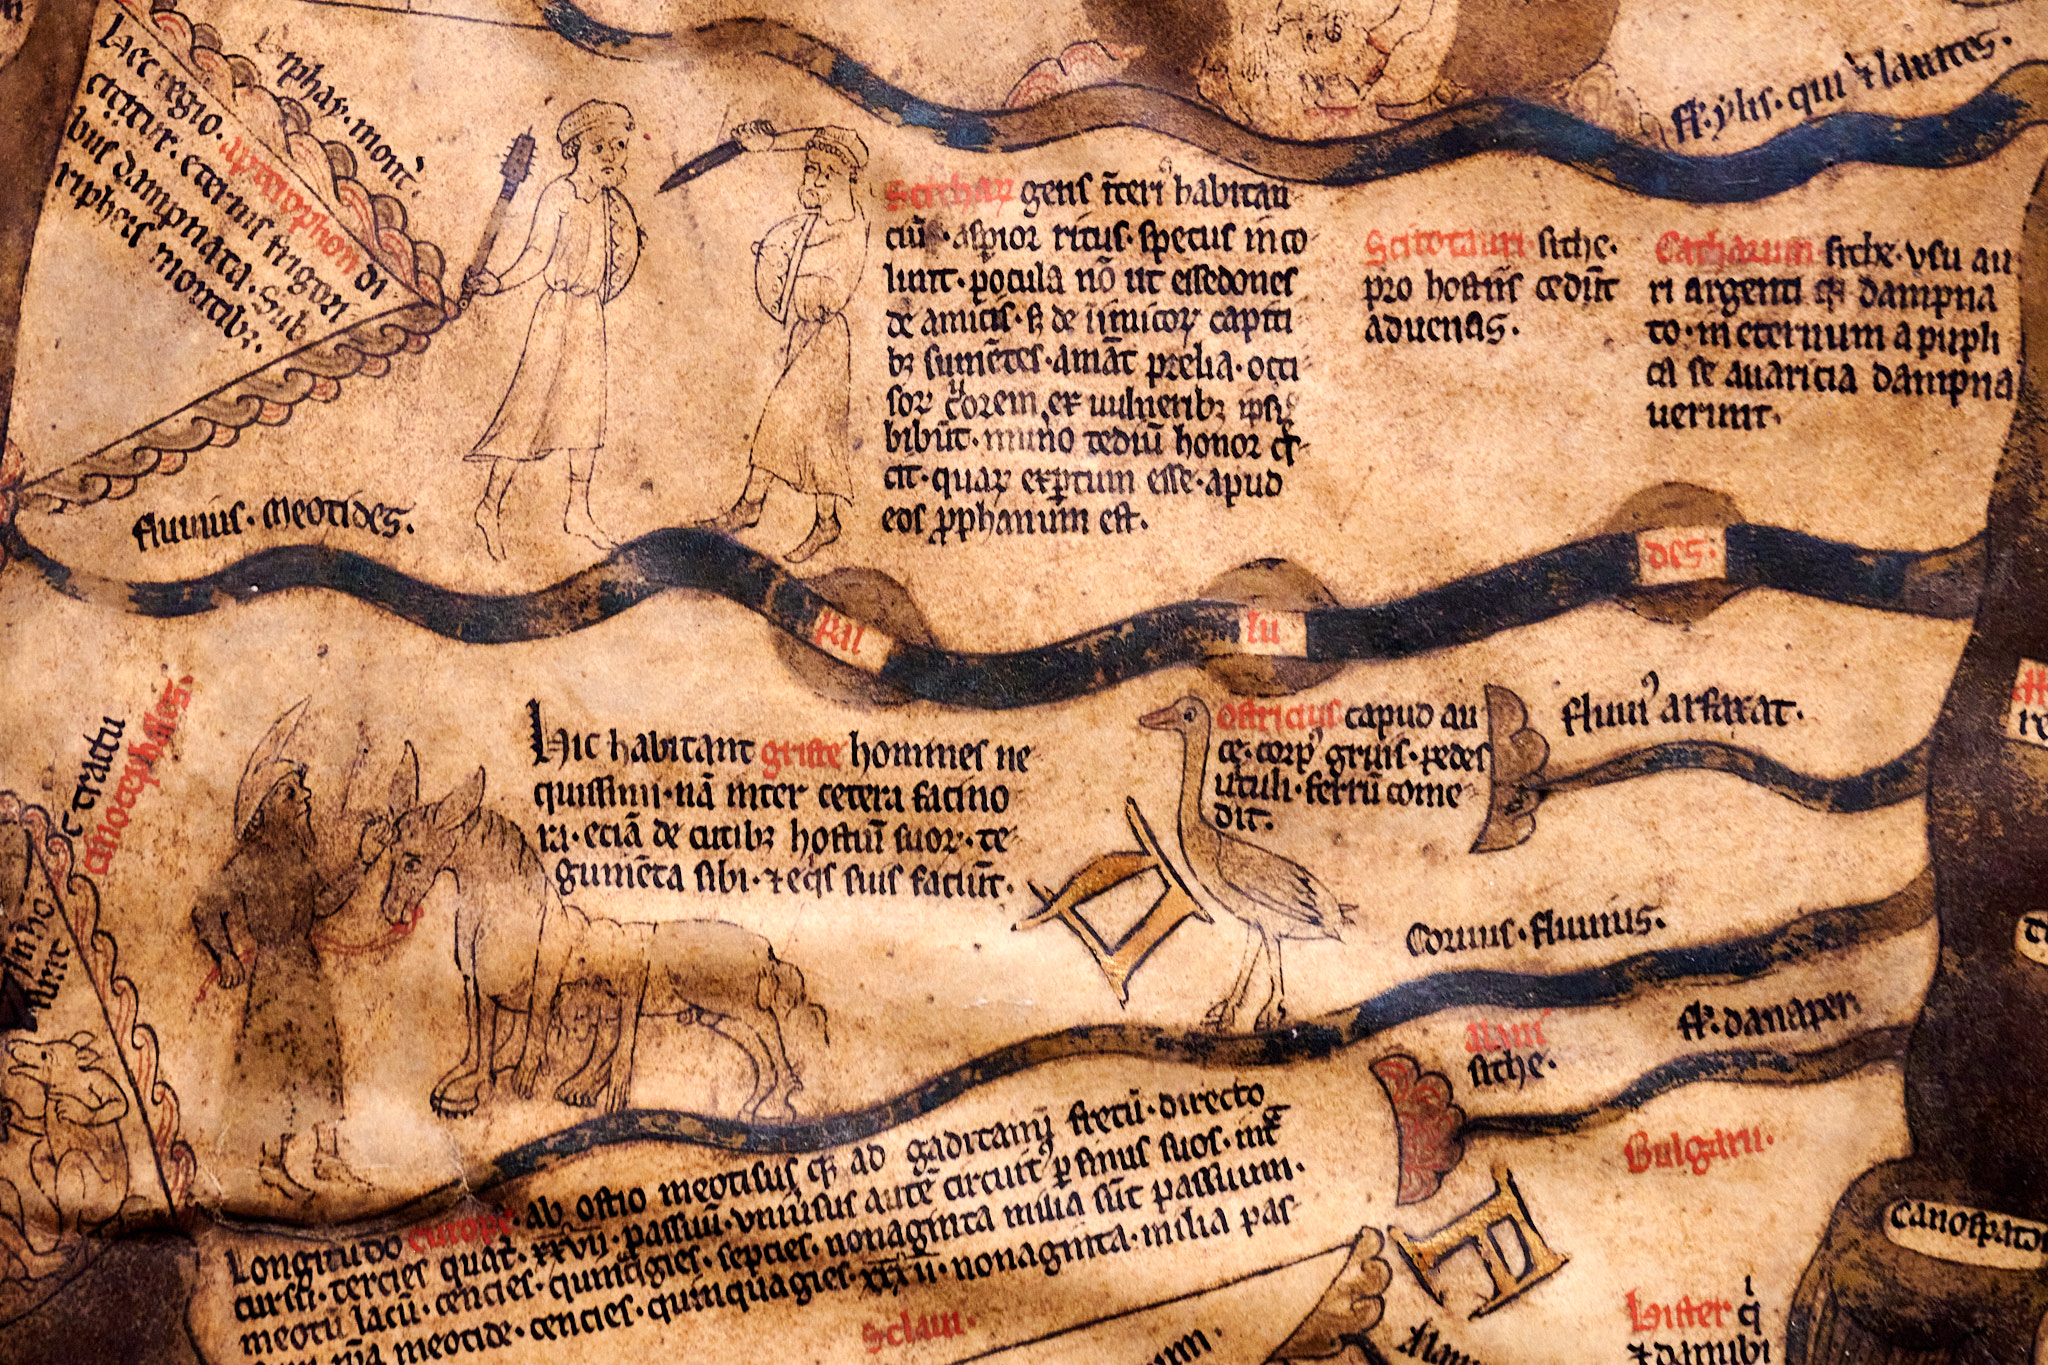 hec regio. apterophon di
citur. eternis frigori
bus dampnata. Sub
ripheis montibꝫ.
riphay. mont̄.
fluuius. Meotides.
Scitharꝝ gens īteriꝰ habitan
ciū. asꝑior ritus. specus inco
lunt. pocula nō ut essedones
de amicis. sꝫ de īimicoꝝ capiti
bꝫ sumētes. amāt prelia. occi
soꝝ cͧorem ex uulneribꝫ ipsis
bibūt.
eos ꝓphanum est.
fł. ylis. qui ⁊
Scitotauri sithe.
pro hostiis cedūt
aduenas.
Catharum sithe. vsu au
ri argenti qꝫ dampna
to. in eternum a pupli
ca se auaricia dampna
uerunt.
pal
lu
des.
tractu
cinocephales
Hic habitant griste homines ne
quissimi. nā inter cetera facino
ra. eciā de cutibꝫ hostiū suoꝝ. te
gumēta sibi. ⁊ eq̄s suis faciūt.
Ostricius capud au
ce. corpꝰ gruis. pedes
uituli. ferrū come
dit.
fluuiꝰ arfaxat.
Coruus. fluuius.
Alani
sithe.
fł. danaper.
Bulgarii.
Longitudo europe. ab ostio meotisus qꝫ ad gaditanū fretū. directo
cursu. tercies quat. xxvii. passuū. vniūsus autē circuitꝰ ꝑ sinus suos. int̄
meotū lacū. cencies. quin̄gies. septies. nonaginta milia sūt passuum.
meotide. cencies. quinquagies. nonaginta. milia pas
Sclaui.
Hister q̇
⁊ danubi